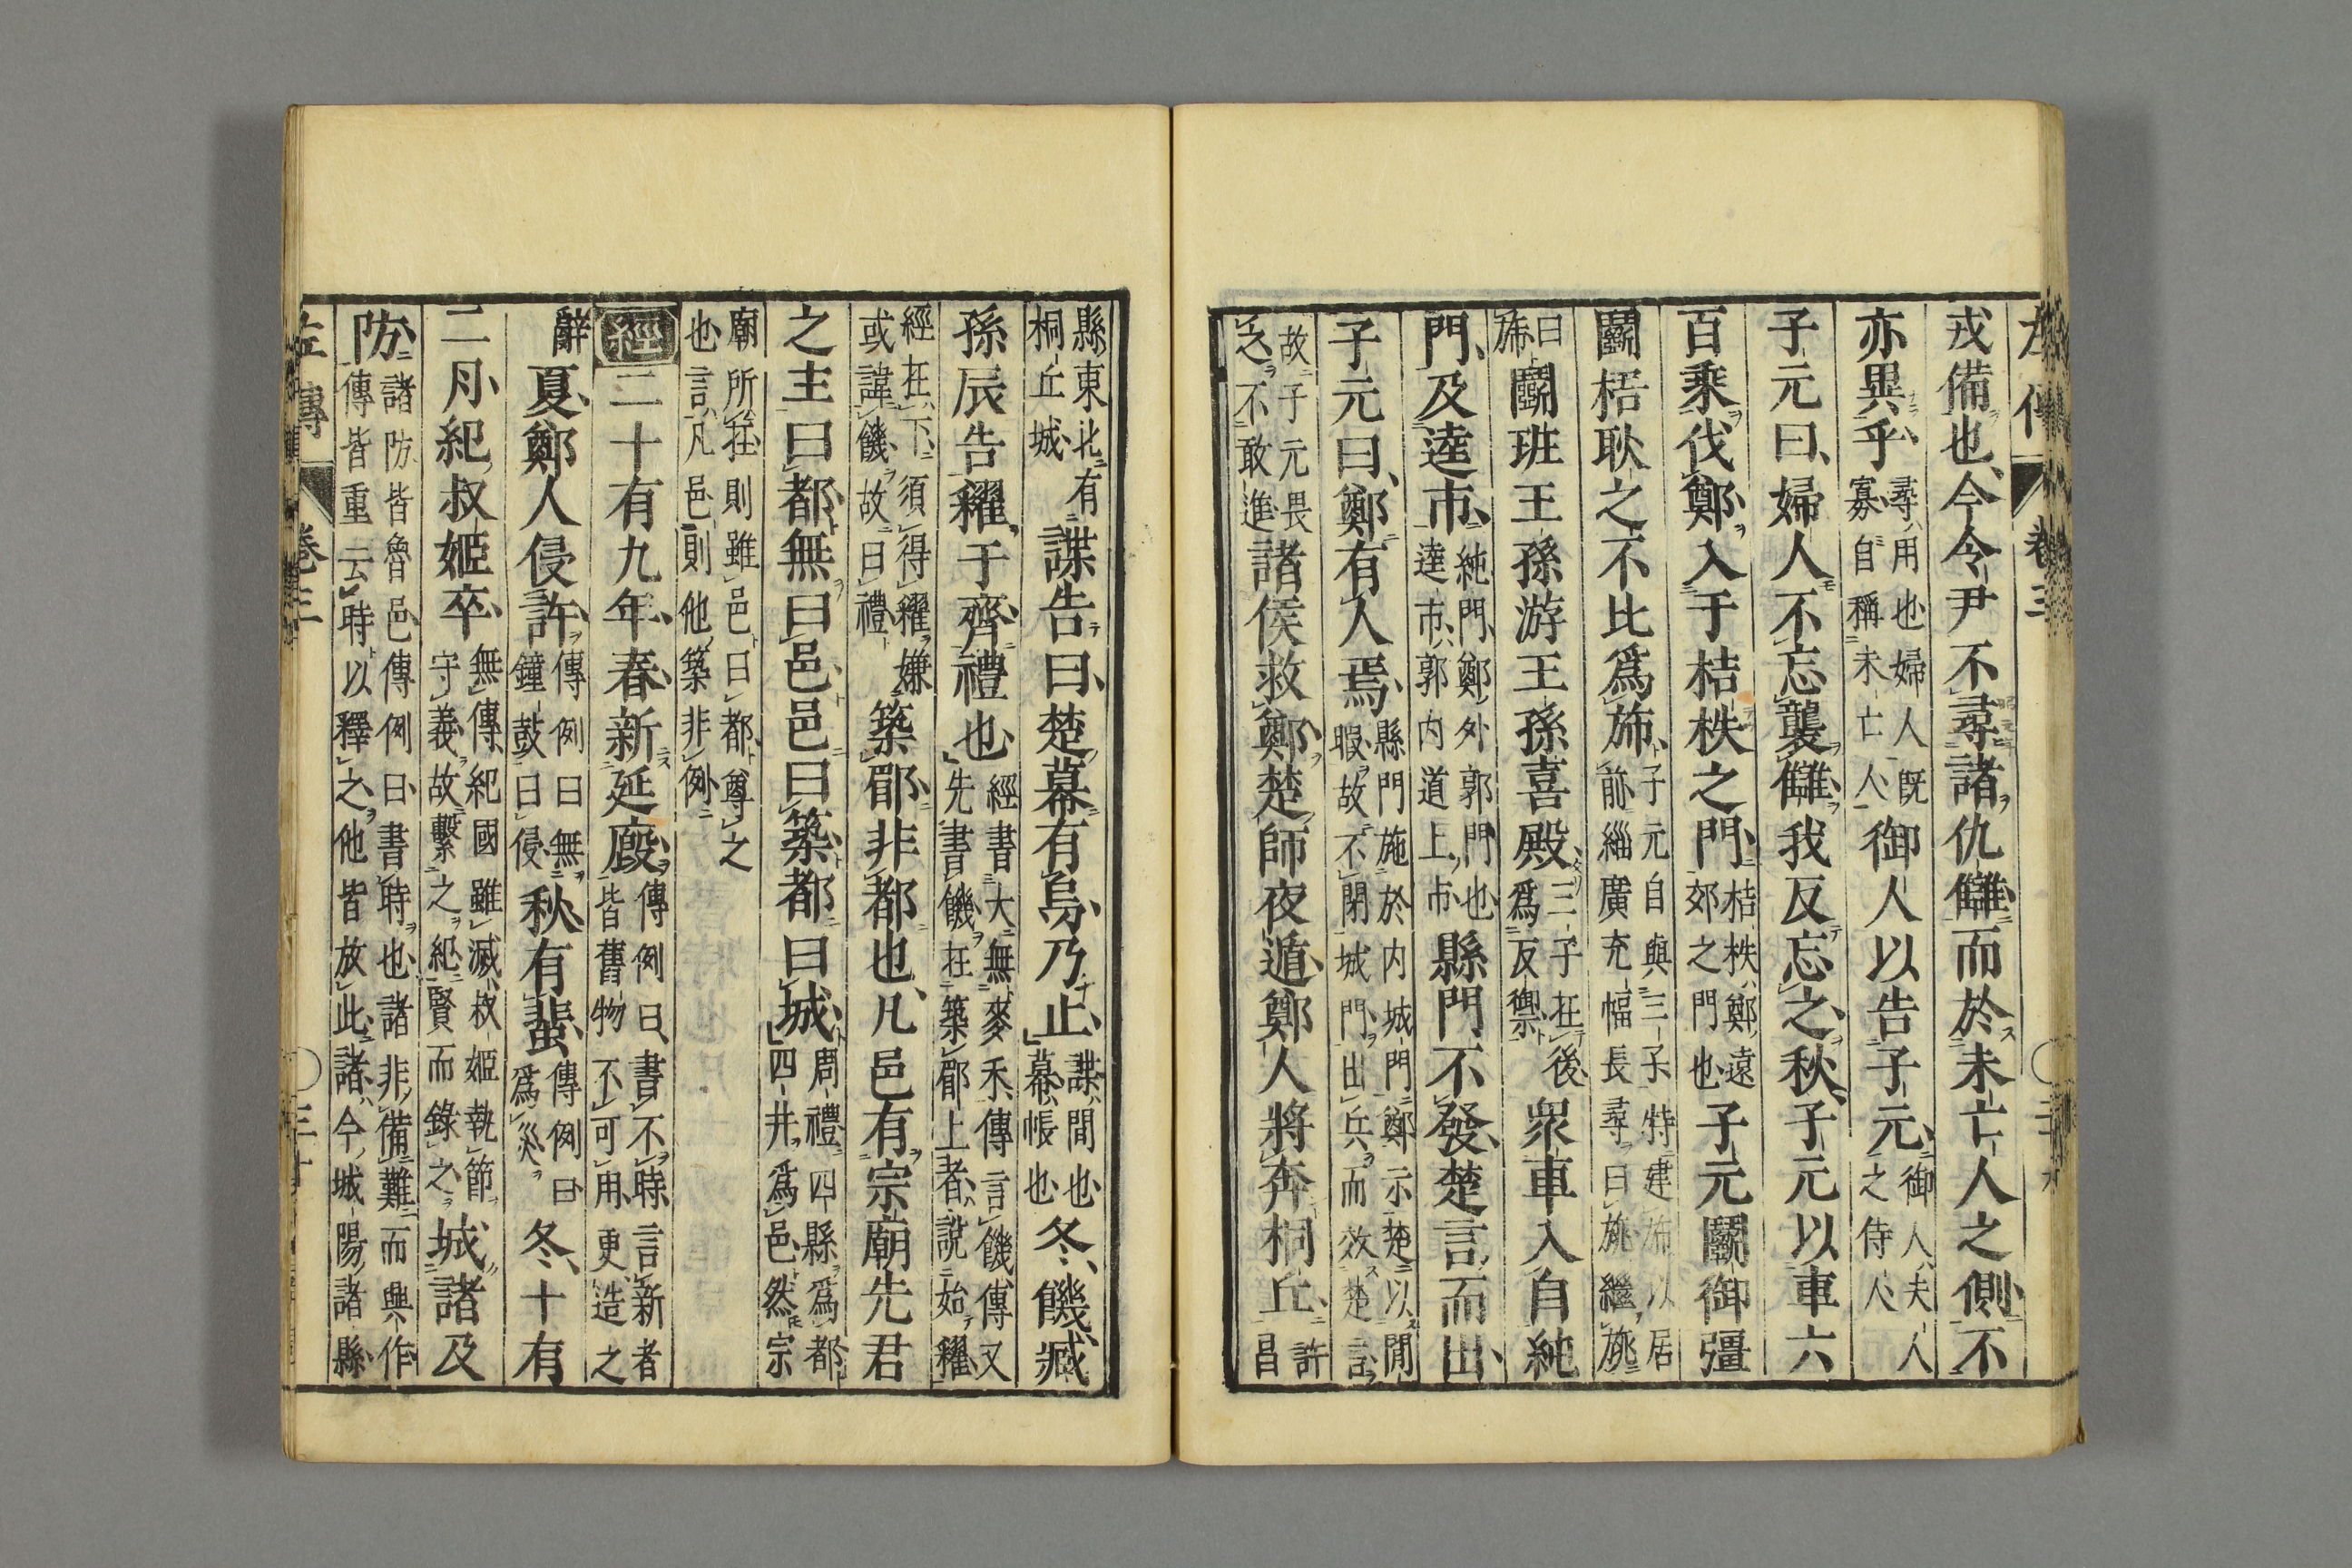 左傳 卷三
戎備也今令尹不尋諸仇讎而於未亡人之側不
亦異乎尋用也婦人既寡自稱未亡人御人以告子元御人夫人之侍人
子元曰婦人不忘襲讎我反忘之秋子元以車六
百乘伐鄭入于桔柣之門桔柣鄭遠郊之門也子元鬭御彊
鬭梧耿之不比爲旆子元自與三子特建旆以居前緇廣充幅長尋曰旐繼旐
曰旆鬭班王孫游王孫喜殿三子在後爲反禦衆車入自純
門及逵市純門鄭外郭門也逵市郭内道上市縣門不發楚言而出
子元曰鄭有人焉縣門施於内城門鄭示楚以閒暇故不閉城門出兵而效楚言
故子元畏之不敢進諸侯救鄭楚師夜遁鄭人將奔桐丘許昌
縣東北有桐丘城諜告曰楚幕有烏乃止諜間也幕帳也冬饑臧
孫辰告糴于齊禮也經書大無麥禾傳言饑傳又先書饑在築郿上者說始糴
經在下須得糴嫌或諱饑故曰禮築郿非都也凡邑有宗廟先君
之主曰都無曰邑邑曰築都曰城周禮四縣爲都四井爲邑然宗
廟所在則雖邑曰都尊之也言凡邑則他築非例
經二十有九年春新延廄傳例曰書不時言新者皆舊物不可用更造之
辭夏鄭人侵許傳例曰無鐘鼓曰侵秋有蜚傳例曰爲災冬十有
二月紀叔姬卒無傳紀國雖滅叔姬執節守義故繫之紀賢而錄之城諸及
防諸防皆魯邑傳例曰書時也諸非備難而興作傳皆重云時以釋之他皆放此諸今城陽諸縣
左傳 卷三 三十